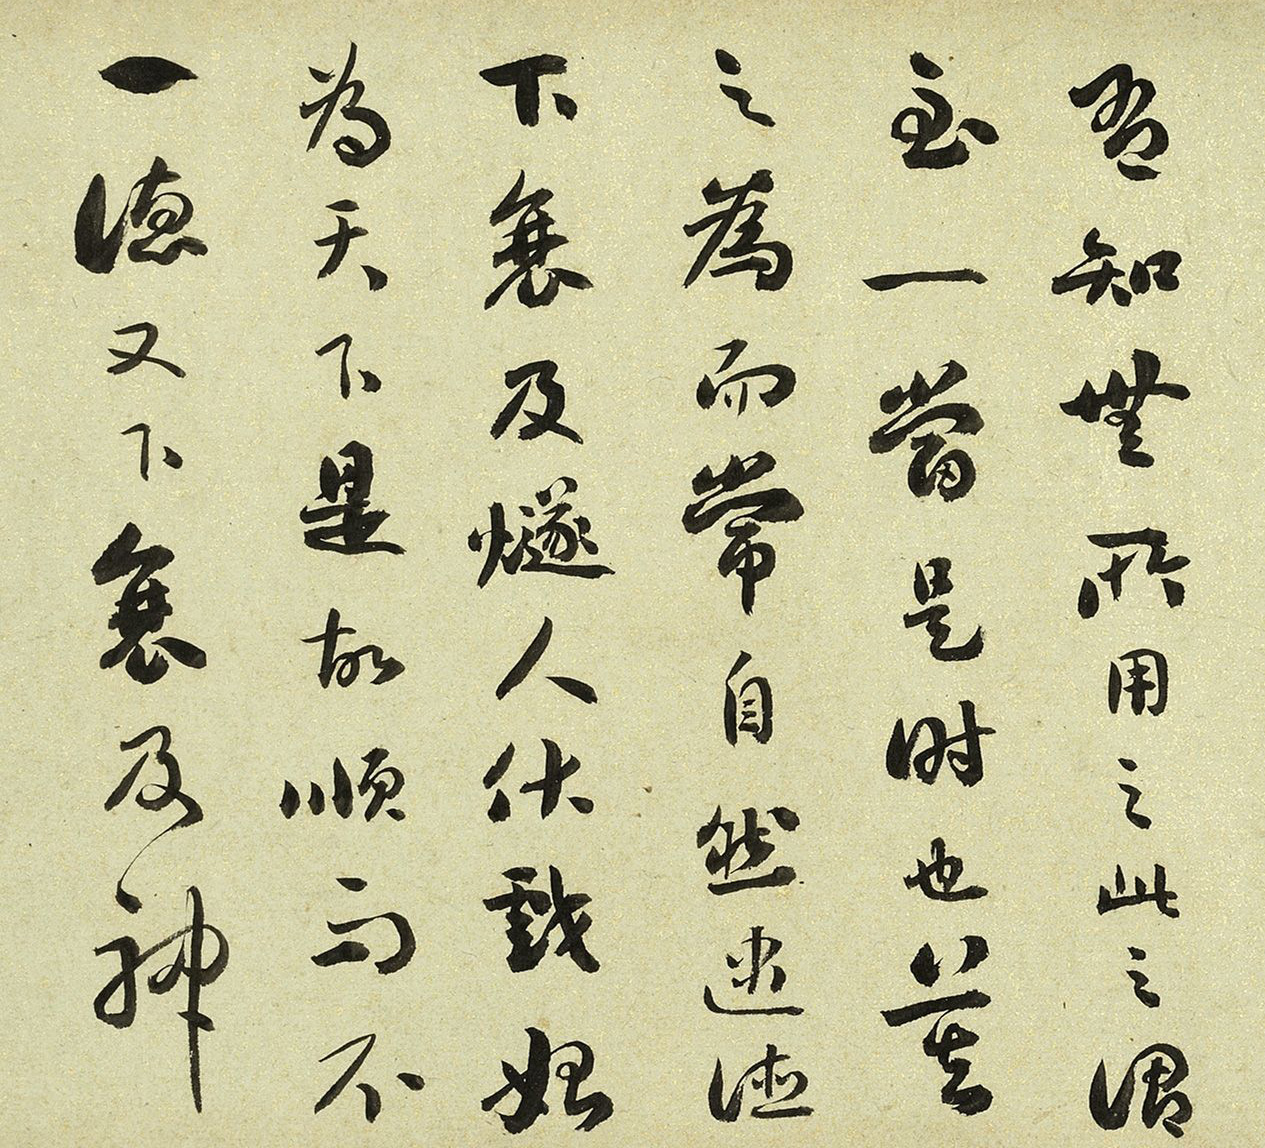 有知無所用之此之謂
至一當是時也莫
之為而常自然逮德
下衰及燧人伏戲始
為天下是故順而不
一德又下衰及神